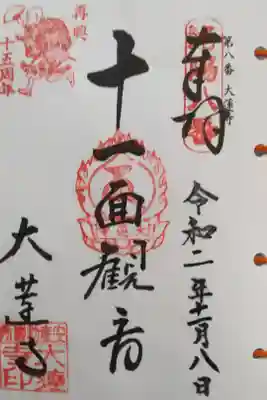 奉拝
第八番 大蓮寺
令和二年十一月八日
十一面観音
大蓮寺
再興
十五周年